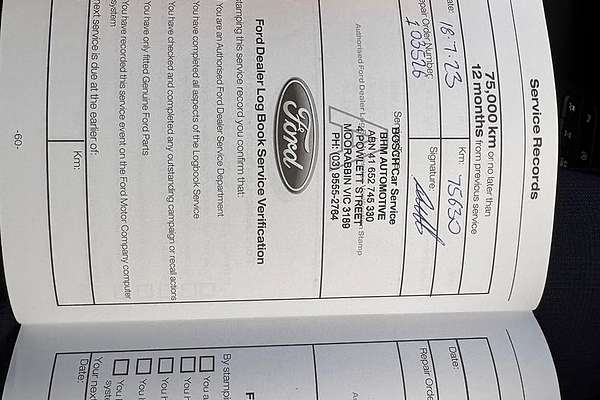 Service Records
75,000 km or no later than
12 months from previous service
Date: 18.7.23
Km: 75630
Repair Order Number:
103526
Signature:
Authorised Ford Dealer Stamp
BOSCH Car Service
BRM AUTOMOTIVE
ABN 41 652 745 330
POWLETT STREET
MOORABBIN VIC 3189
PH: (03) 9555-2764
Ford
Ford Dealer Log Book Service Verification
stamping this service record you confirm that:
You are an Authorised Ford Dealer Service Department
You have completed all aspects of the Logbook Service
You have checked and completed any outstanding campaign or recall actions
You have only fitted Genuine Ford Parts
You have recorded this service event on the Ford Motor Company computer
system
next service is due at the earlier of:
Km:
-60-
Date:
Repair Orde
Au
F
By stampi
You a
You
You
You
You
syste
Your next
Date: